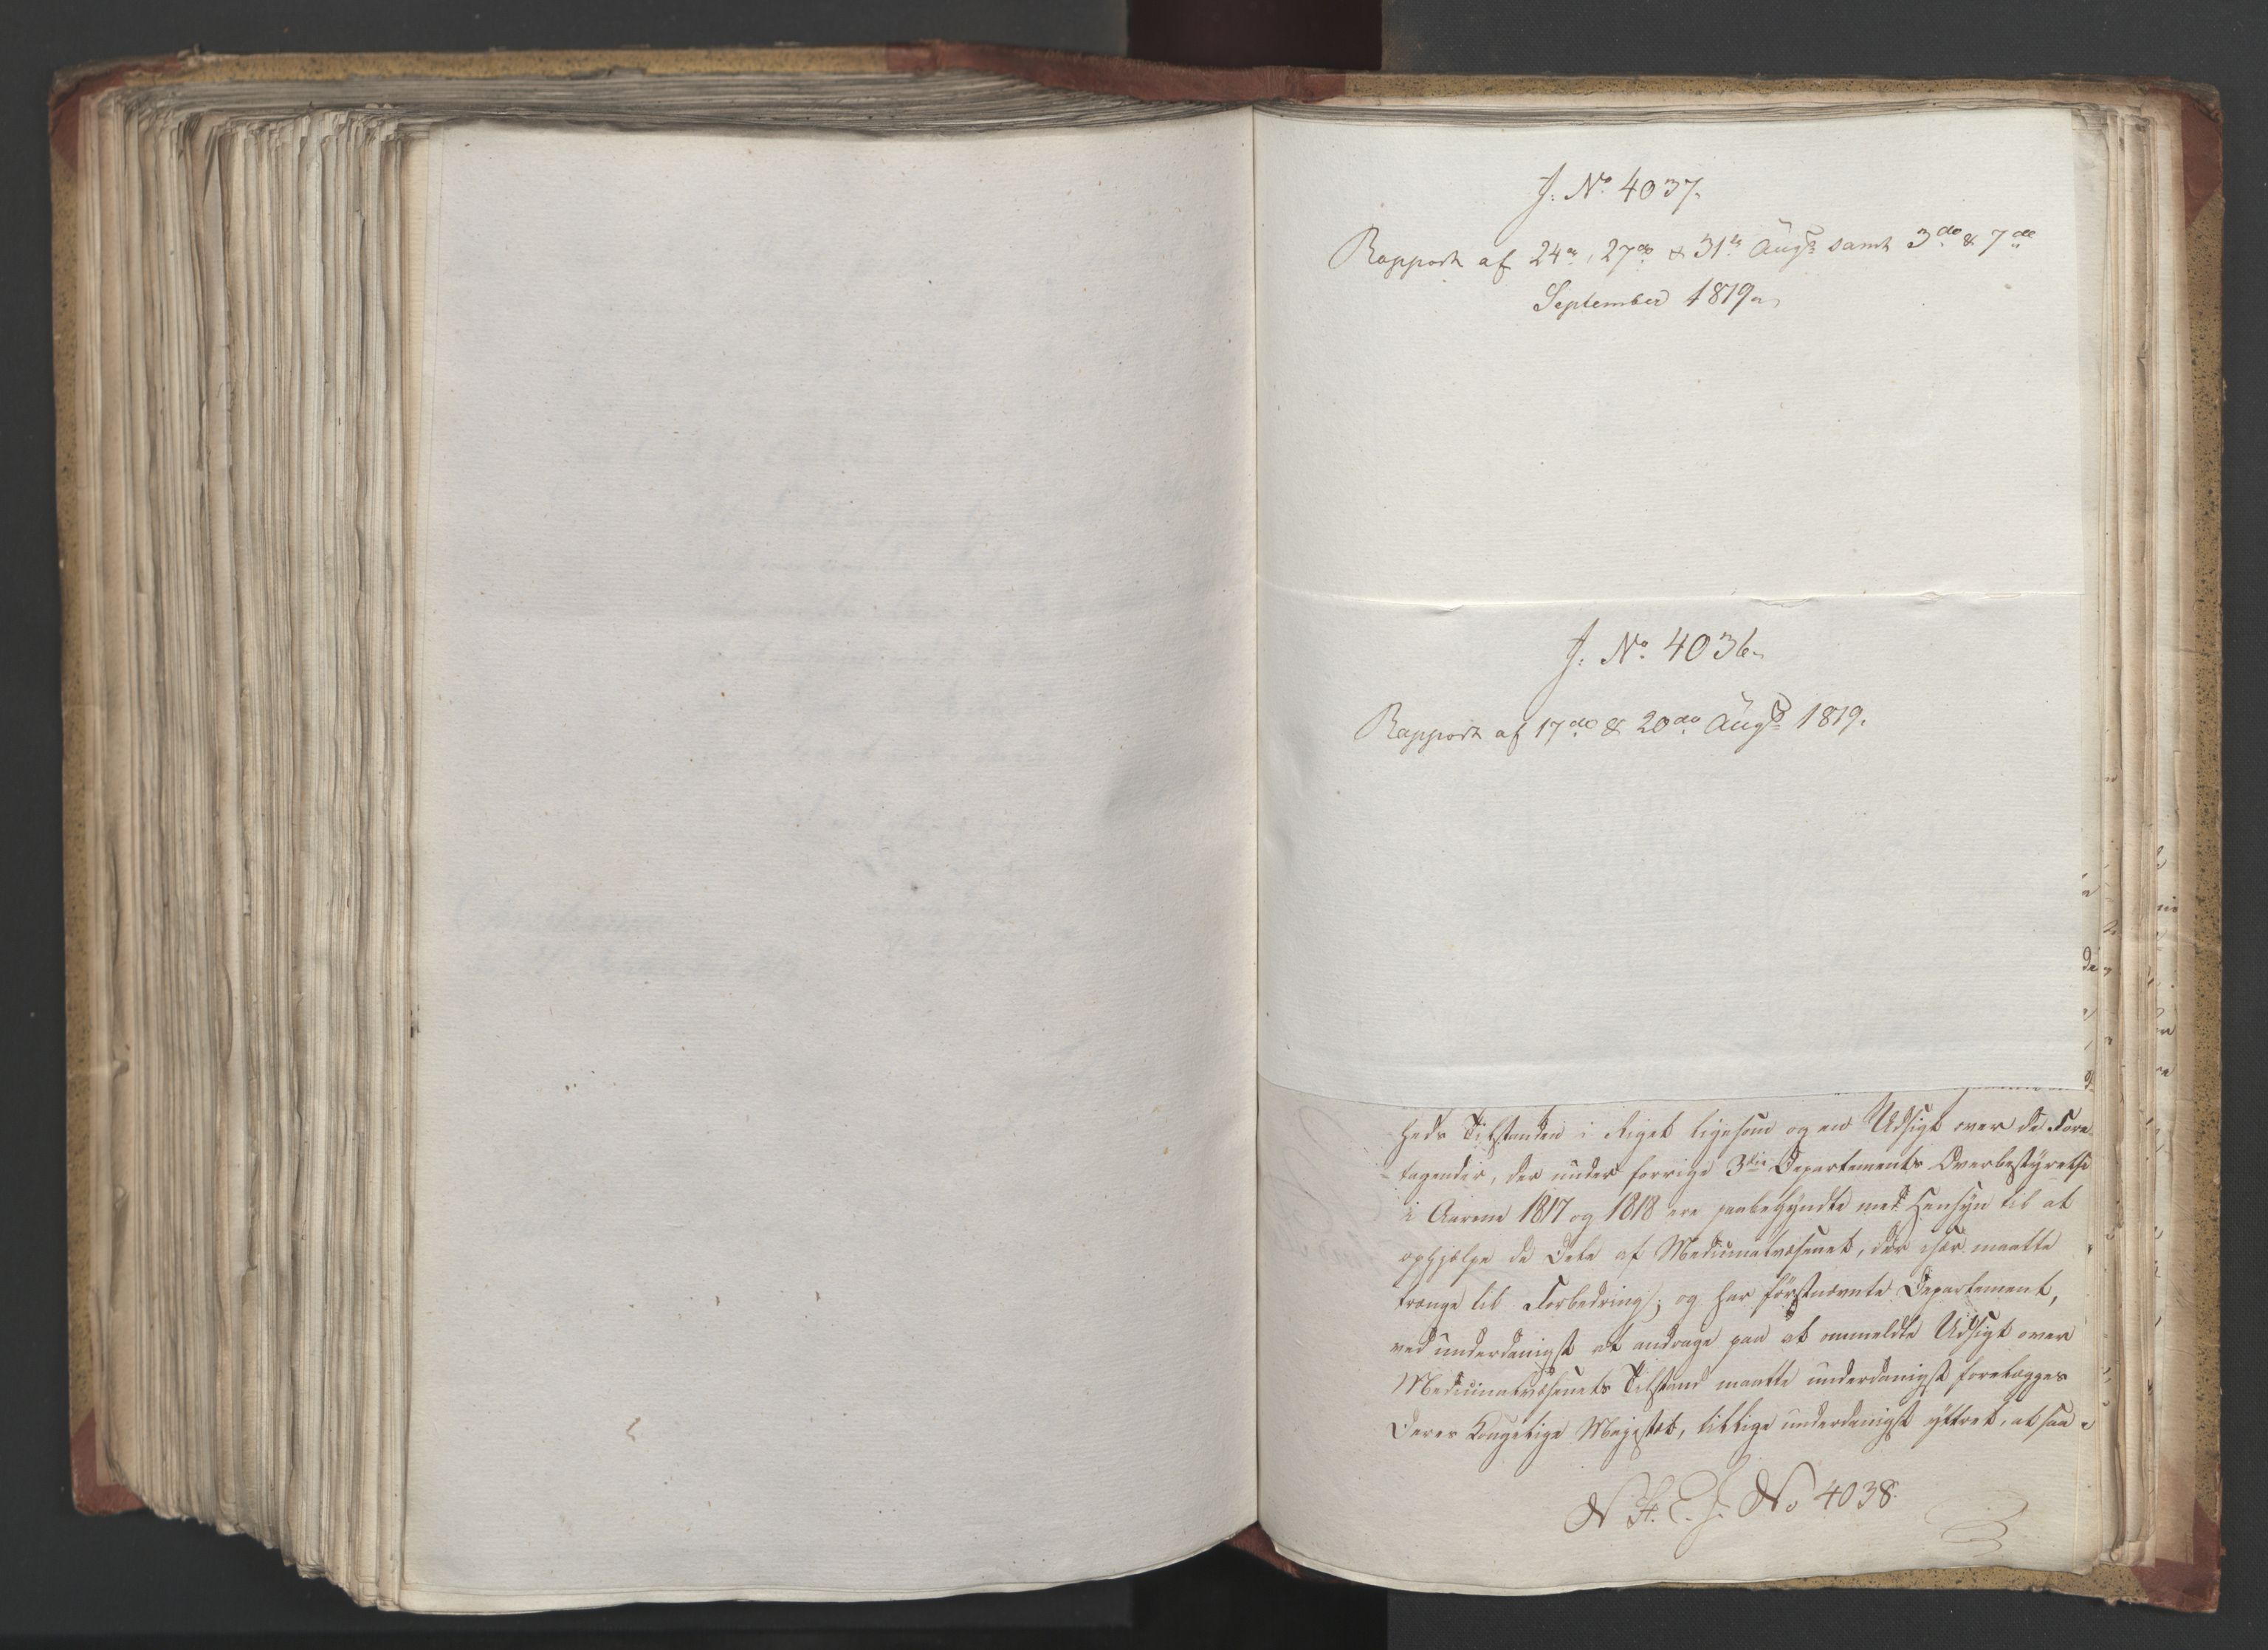 J: No. 4037.
Rapport af 24de, 27de & 31te Augt: samt 3de & 7de
September 1819.
J: No. 4036.
Rapport af 17de & 20de Augt: 1819.
heds Tilstanden i Riget ligesom og en Udsigt over de Fore-
tagender, der under forrige 3die Departements Overbestyrelse
i Aarene 1817 og 1818 ere paabegyndte med Hensyn til at
ophjælpe de Dele af Medicinalvæsenet, der især maatte
trænge til Forbedring; og har førstnævnte Departement,
ved underdanigst at andrage paa at ommeldte Udsigt over
Medicinalvæsenets Tilstand maatte underdanigst forelægges
Deres Kongelige Majestæt, tillige underdanigst yttret, at saa
N. St. E. J. No 4038.